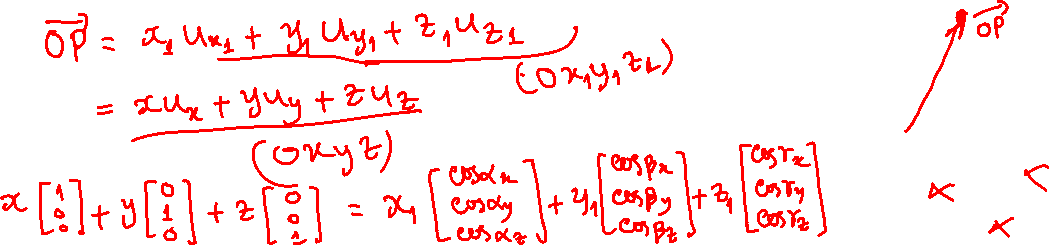 $\overrightarrow{OP} = x_1 u_{x_1} + y_1 u_{y_1} + z_1 u_{z_1}$
$(O x_1 y_1 z_1)$
$\overrightarrow{OP}$
$= x u_x + y u_y + z u_z$
$(O x y z)$
$x \begin{bmatrix} 1 \\ 0 \\ 0 \end{bmatrix} + y \begin{bmatrix} 0 \\ 1 \\ 0 \end{bmatrix} + z \begin{bmatrix} 0 \\ 0 \\ 1 \end{bmatrix} = x_1 \begin{bmatrix} \cos\alpha_x \\ \cos\alpha_y \\ \cos\alpha_z \end{bmatrix} + y_1 \begin{bmatrix} \cos\beta_x \\ \cos\beta_y \\ \cos\beta_z \end{bmatrix} + z_1 \begin{bmatrix} \cos\gamma_x \\ \cos\gamma_y \\ \cos\gamma_z \end{bmatrix}$